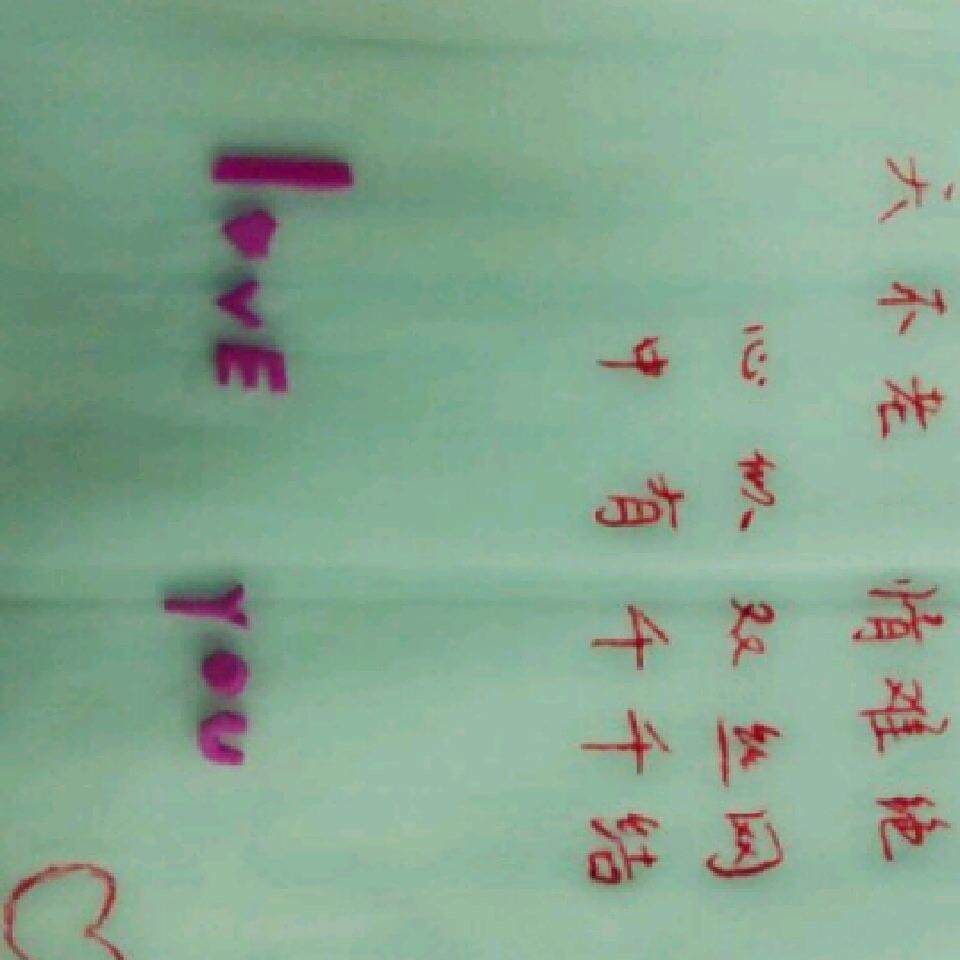 天不老 情难绝
心似双丝网
中有千千结
I♥vE Y●U